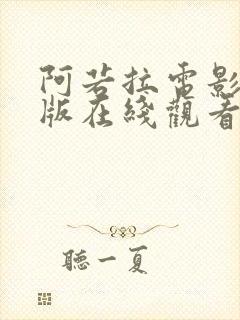 阿若拉電影
版在綫觀看
聽一夏